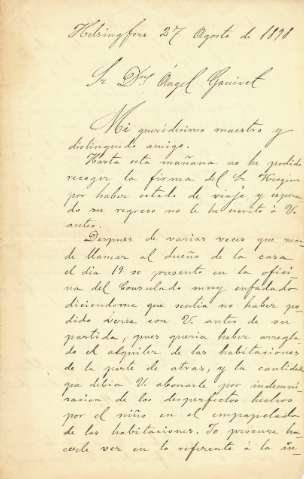 Helsingfors 27 Agosto de 1898
Sr Dn Ángel Ganivet
Mi queridísimo maestro y
distinguido amigo.
Hasta esta mañana no he podido
recoger la firma del Sr
por haber estado de viaje y esperan
do su regreso no le he escrito á V.
antes.
Despues de varias veces que man
dé llamar al dueño de la casa
el dia 19 se presentó en la ofici
na del Consulado muy enfadado
diciendome que sentia no haber po
dido verse con V. antes de su
partida, pues queria haber arregla
do el alquiler de las habitaciones
de la parte de atras, y la cantidad
que debia V abonarle por indemni
sacion de los desperfectos hechos
por el niño en el empapelado
de las habitaciones. Yo procuré ha
cerle ver en lo referente á la in-